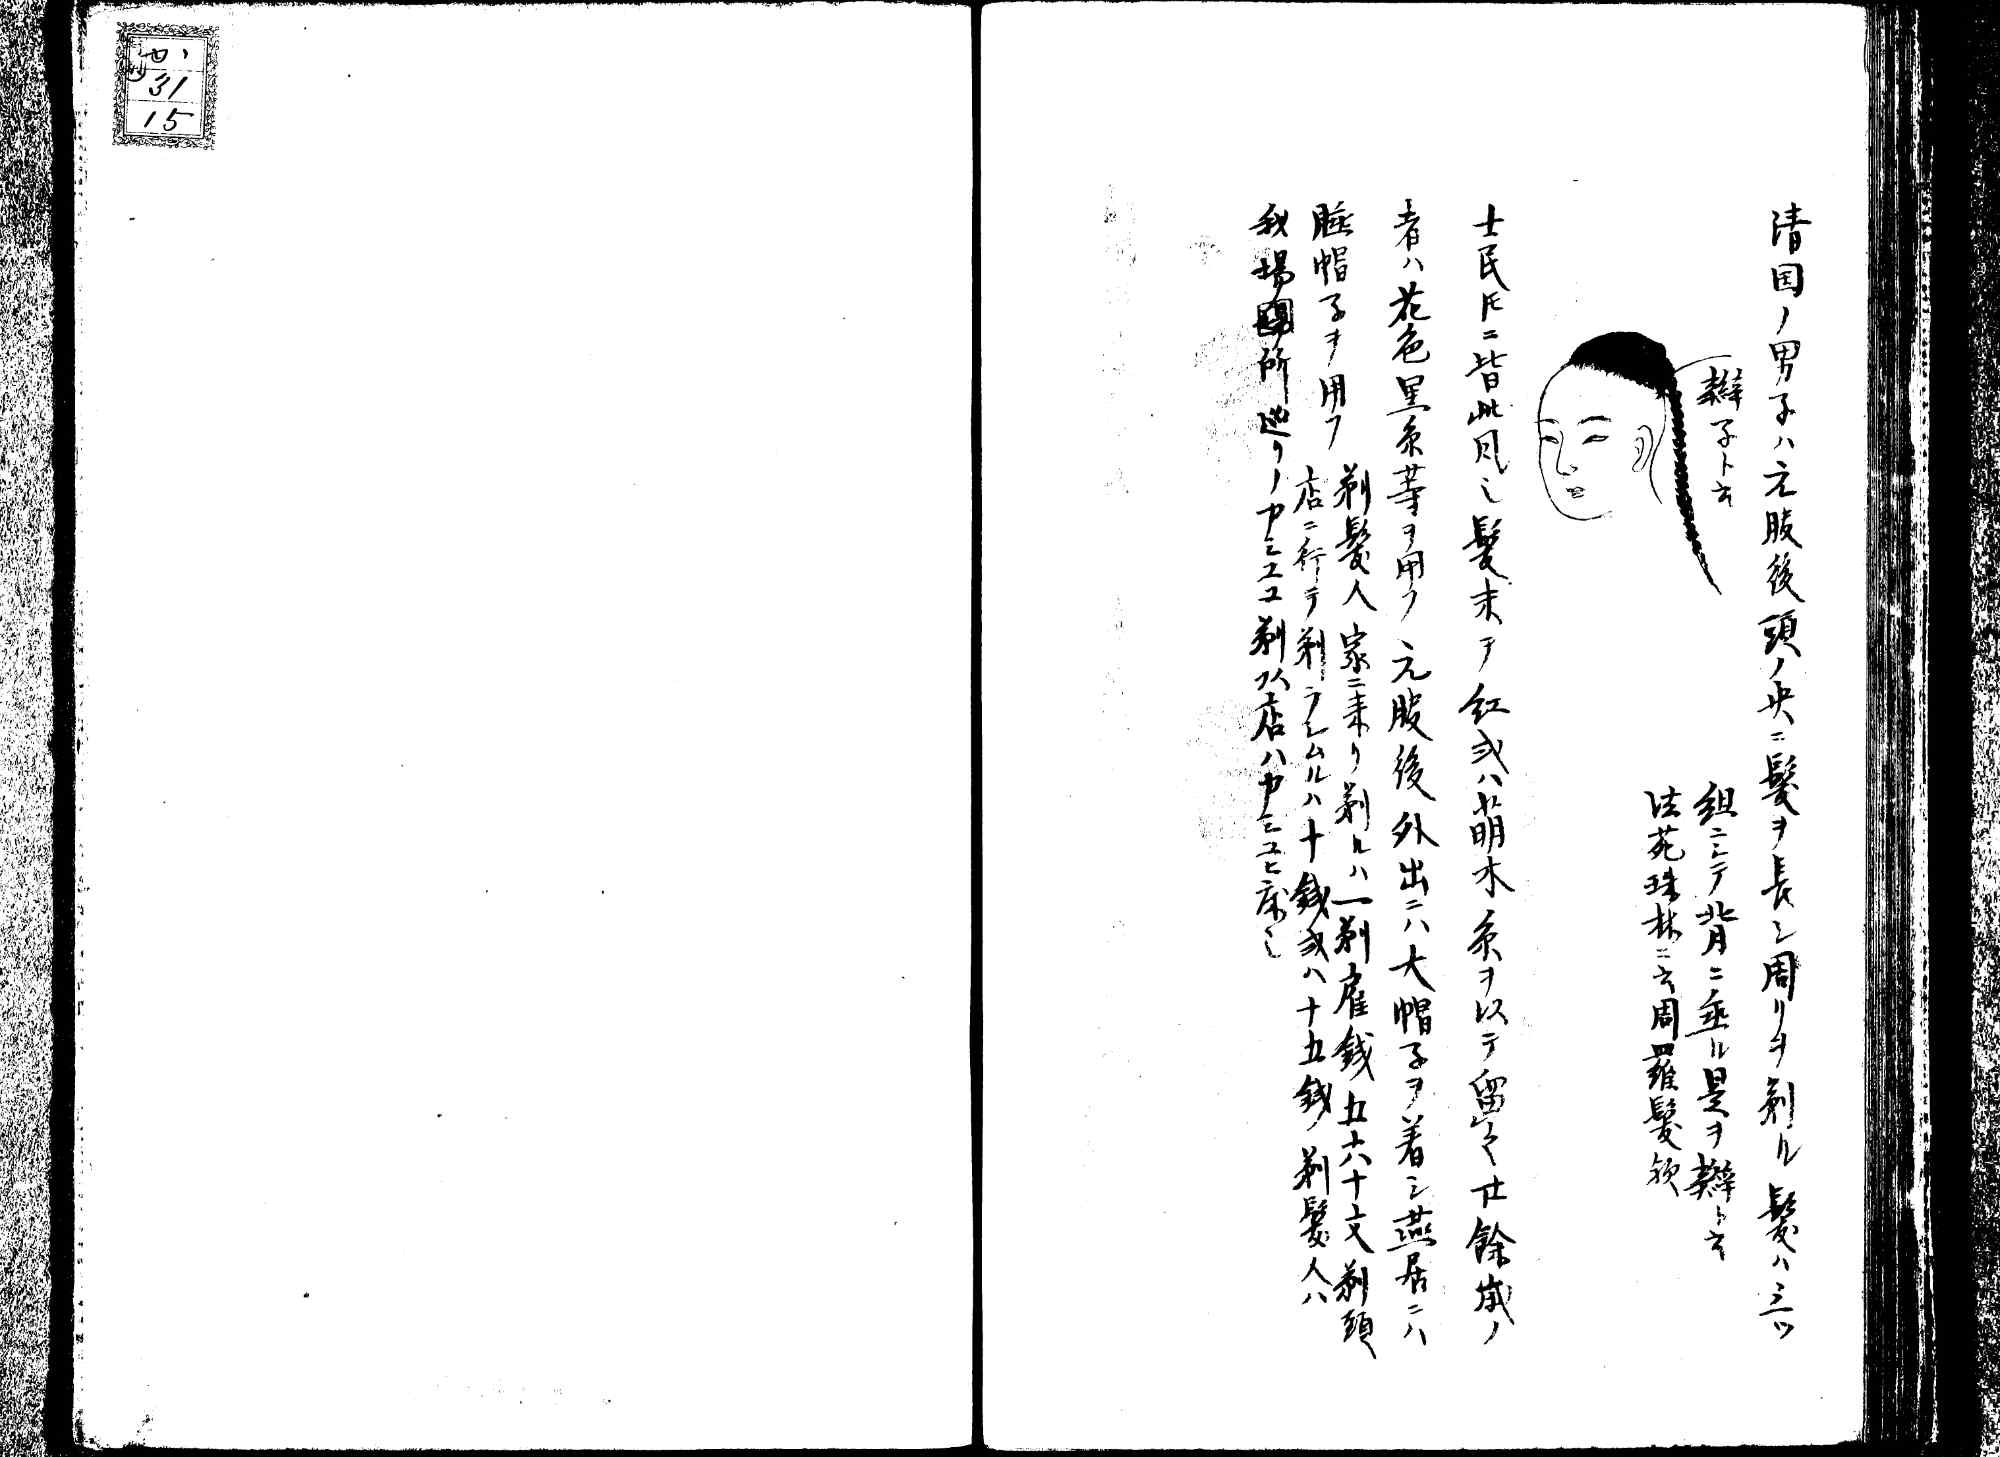 清国ノ男子ハ元服後頭ノ央ニ髪ヲ長シ周リヲ剃ル髪ハ三ツ
組ニシテ背ニ垂ル是ヲ辮ト云
法苑珠林ニ云周羅髪欤
辮子ト云
士民トモニ皆此風也髪末ヲ紅或ハ萌木糸ヲ以テ留ム廿餘歳ノ
者ハ花色黒糸等ヲ用フ元服後外出ニハ大帽子ヲ着シ燕居ニハ
睡帽子ヲ用フ
剃髪人家ニ来リ剃ルハ一剃雇銭五六十文剃頭
店ニ行テ剃ラシムルハ十銭或ハ十五銭ノ剃髪人ハ
我場所廻リノカミユユ剃頭店ハカミユヒ床也
四
31
15